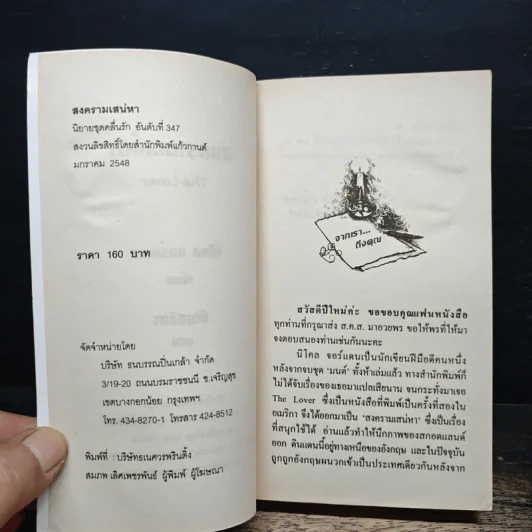 สงครามเสน่หา
นิยายชุดคลื่นรัก อันดับที่ 347
สงวนลิขสิทธิ์โดยสำนักพิมพ์แก้วกานต์
มกราคม 2548
ราคา 160 บาท
จัดจำหน่ายโดย
บริษัท ธนบรรณปิ่นเกล้า จำกัด
3/19-20 ถนนบรมราชชนนี ซ.เจริญสุข
เขตบางกอกน้อย กรุงเทพฯ
โทร. 434-8270-1 โทรสาร 424-8512
พิมพ์ที่ : บริษัทเนศวรพรินติ้ง
สมภพ เลิศเพชรพันธ์ ผู้พิมพ์ ผู้โฆษณา
จากเรา...
ถึงคุณ
สวัสดีปีใหม่ค่ะ ขอขอบคุณแฟนหนังสือ
ทุกท่านที่กรุณาส่ง ส.ค.ส. มาอวยพร ขอให้พรที่ให้มา
จงตอบสนองท่านเช่นกันนะคะ
นิโคล จอร์แดนเป็นนักเขียนฝีมือดีคนหนึ่ง
หลังจากจบชุด ‘มนต์’ ทั้งห้าเล่มแล้ว ทางสำนักพิมพ์ก็
ไม่ได้จับเรื่องของเธอมาแปลเสียนาน จนกระทั่งมาเจอ
The Lover ซึ่งเป็นหนังสือที่พิมพ์เป็นครั้งที่สองใน
อเมริกา จึงได้ออกมาเป็น ‘สงครามเสน่หา’ ซึ่งเป็นเรื่อง
ที่สนุกใช้ได้ อ่านแล้วทำให้นึกภาพของสกอตแลนด์
ออก ดินแดนนี้อยู่ทางเหนือของอังกฤษ และในปัจจุบัน
ถูกถูกอังกฤษผนวกเข้าเป็นประเทศเดียวกันหลังจาก